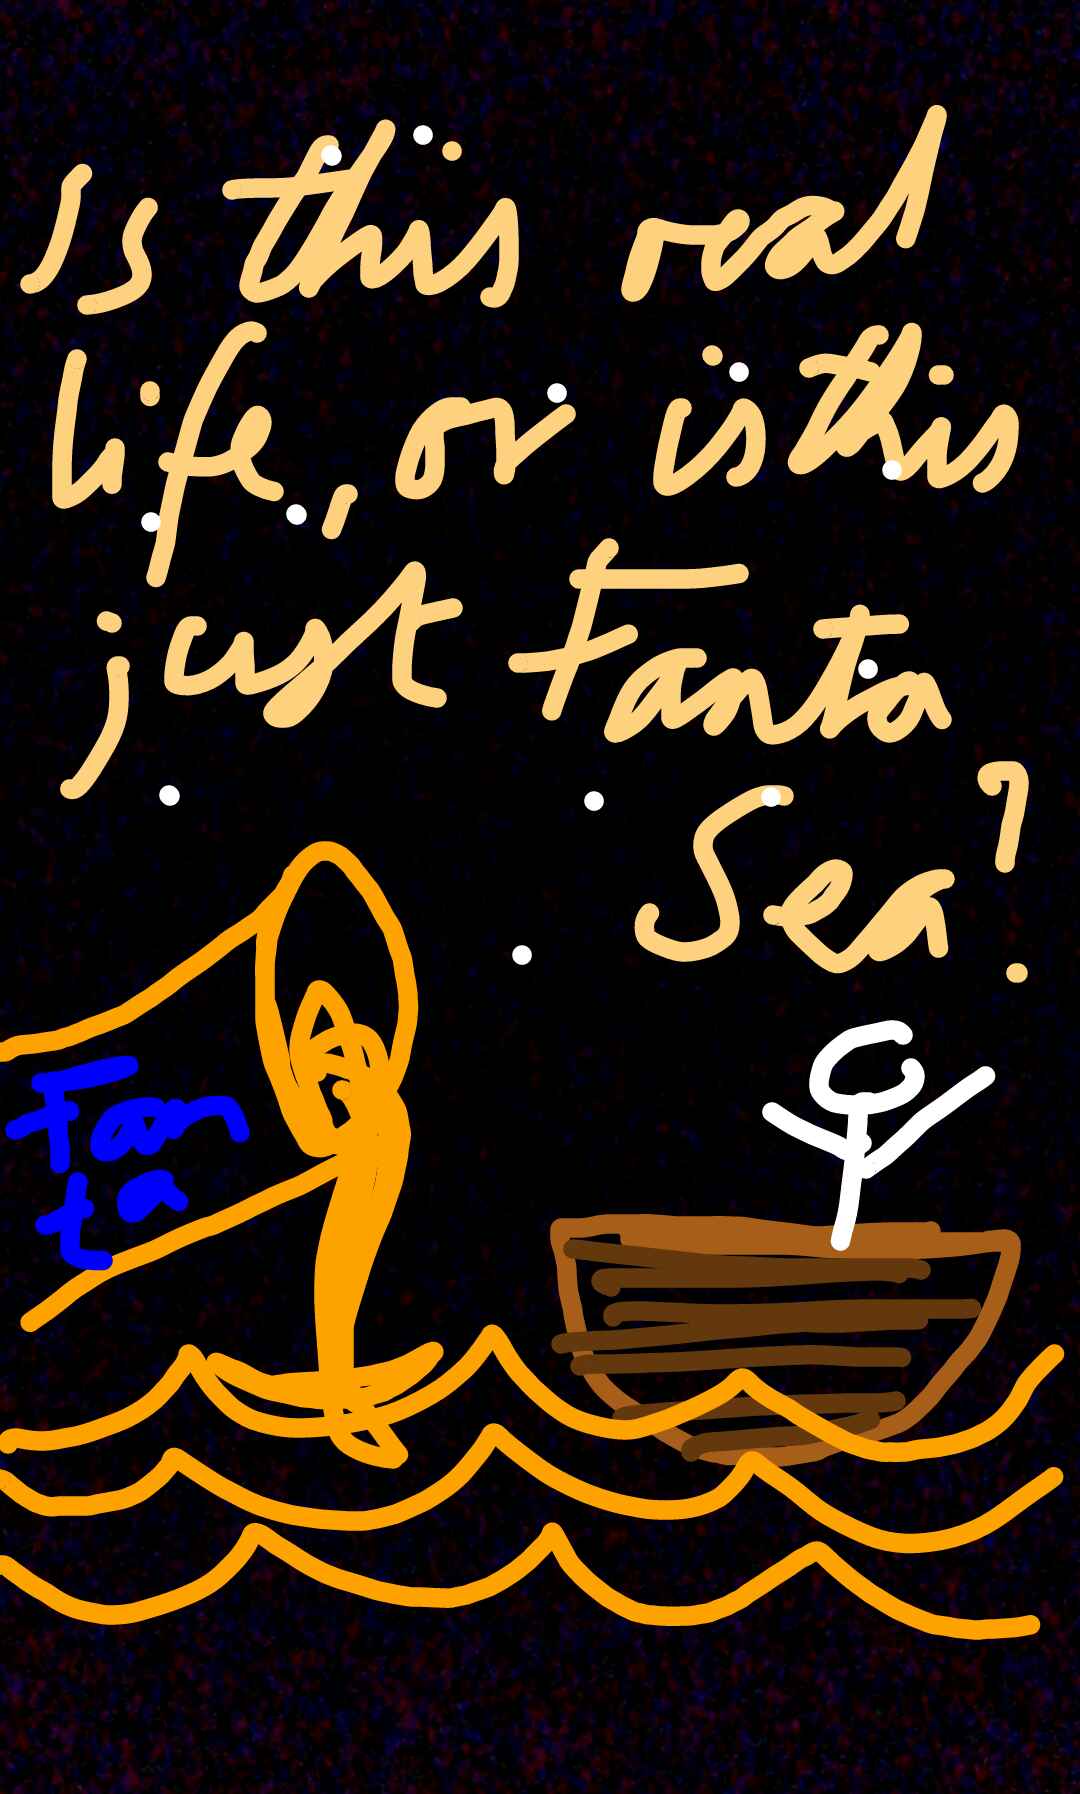 Is this real
life, or is this
just Fanta
Sea?
Fan
ta